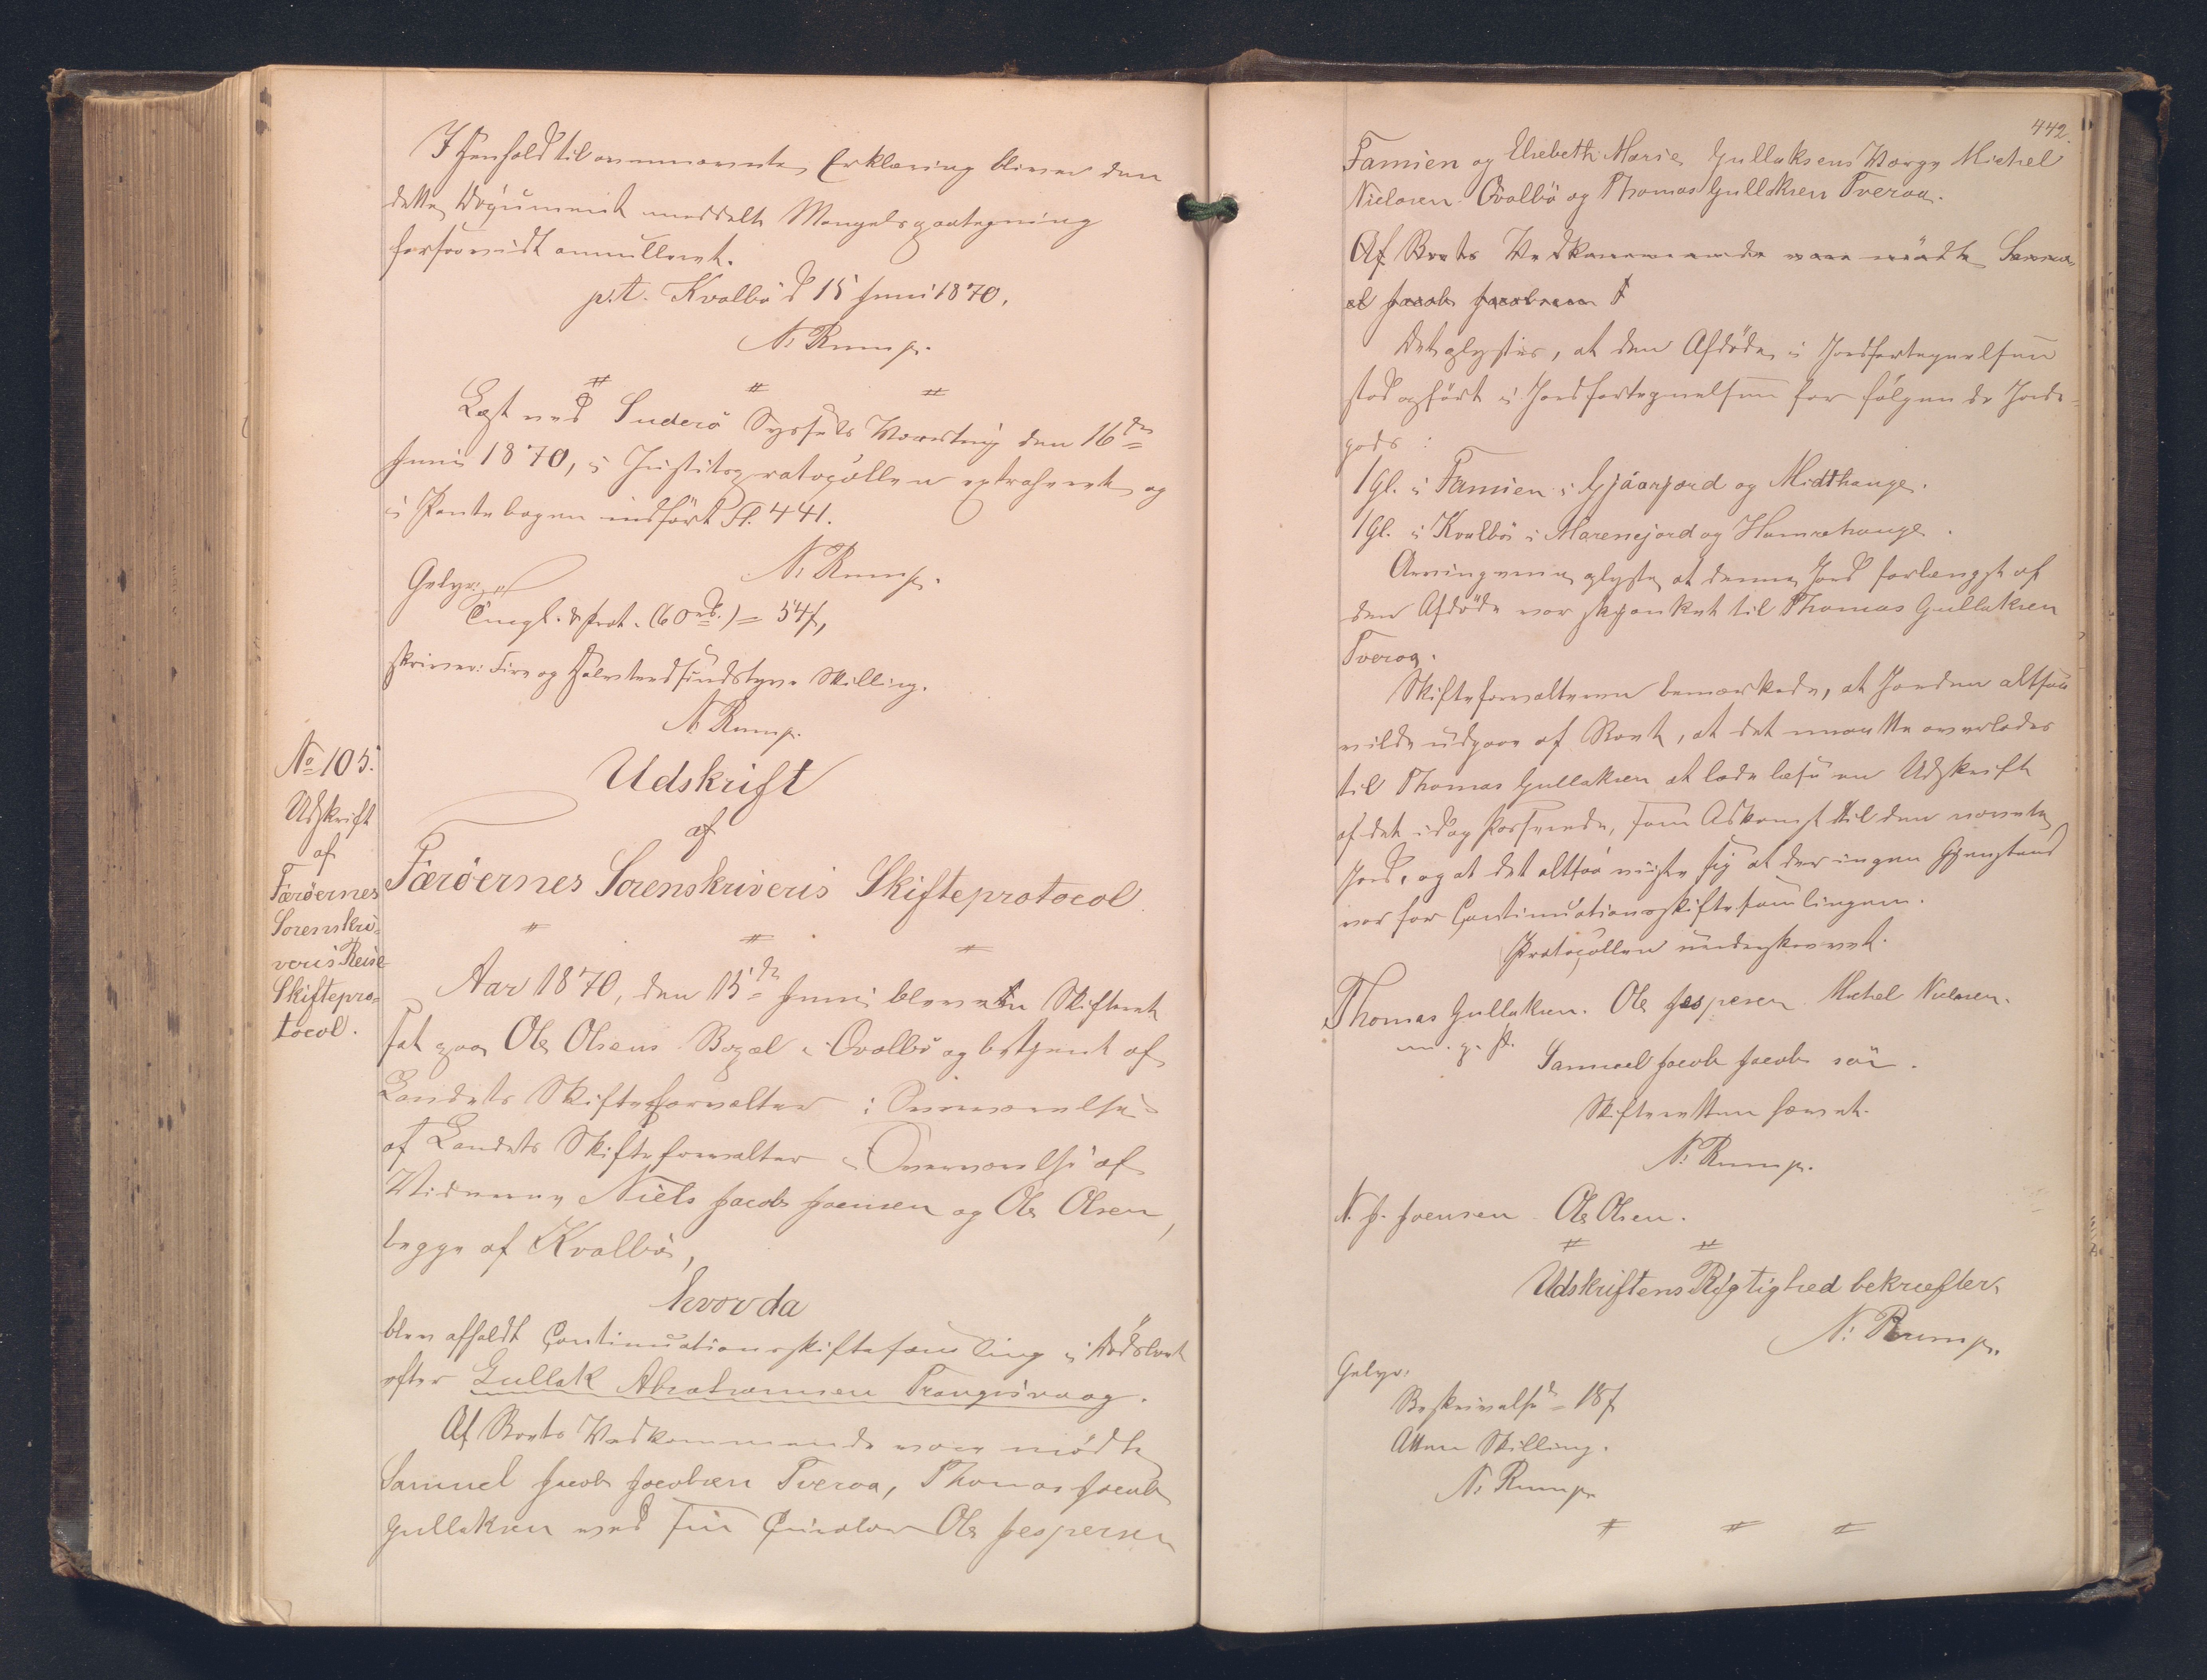 I Henhold til ovennævnte Erklæring bliver den
dette Document meddelte Mangelspaategning
forsaavidt annulleret.
p.t. Kvalbø d 15 Juni 1870.
N. Rump.
Læst ved Suderø Syssels Vaarting den 16de
Juni 1870, i Justitsprotocollen extraheret og
i Pantebogen indført Fl. 441.
N. Rump.
Gebyr:
Tingl. & Prot. (60 rd.) = 54 ſ,
skriver: Fire og Halvtredsindstyve Skilling.
N. Rump.
No 105.
Udskrift
af
Færøernes
Sorenskri-
veris Reise
Skiftepro-
tocol.
Udskrift
af
Færøernes Sorenskriveris Skifteprotocol
Aar 1870, den 15de Juni blev en Skifteret
sat paa Ole Olsens Bopæl i Qvalbø og betjent af
Landets Skifteforvalter i Overværelse
af Landets Skifteforvalter i Overværelse af
Vidnerne Niels Jacob Joensen og Ole Olsen,
begge af Kvalbø,
hvorda
blev afholdt Continuationsskiftesamling i Dødsboet
efter Gullak Abrahamsen Trangisvaag.
Af Boets Vedkommende vare mødte
Samuel Jacob Jacobsen Tveraa, Thomas Jacob
Gullaksen ved sin Curator Ole Jespersen
442.
Famien og Elsebeth Marie Gullaksens Værge Michel
Nielsen Qvalbø og Thomas Gullaksen Tveraa.
Af Boets Vedkommende vare mødte Samu-
el Jacob Jacobsen T
Det oplystes, at den Afdøde i Jordfortegnelsen
stod opført i Jordfortegnelsen for følgende Jorde-
gods:
1 Gl. i Famien i Gjáarjord og Midthauge.
1 Gl. i Kvalbø i Marenejord og Hamrehauge.
Arvingerne oplyste at denne Jord forlængst af
den Afdøde var skjænket til Thomas Gullaksen
Tveraa.
Skifteforvalteren bemærkede, at Jorden altsaa
vilde udgaae af Boet, at det maatte overlades
til Thomas Gullaksen at lade læse en Udskrift
af det idag Passerede, som Adkomst til den nævnte
Jord, og at det altsaa viiste sig at der ingen Gjenstand
var for Continuationsskiftesamlingen.
Protocollen underskrevet.
Thomas Gullaksen. Ole Jespersen Michel Nielsen.
m. p. P.
Samuel Jacob Jacob søn.
Skifteretten hævet.
N. Rump.
N. J. Joensen Ole Olsen.
Udskriftens Rigtighed bekræfter
N. Rump.
Gebyr.
Beskrivelse = 18 ſ
Atten Skilling.
N. Rump